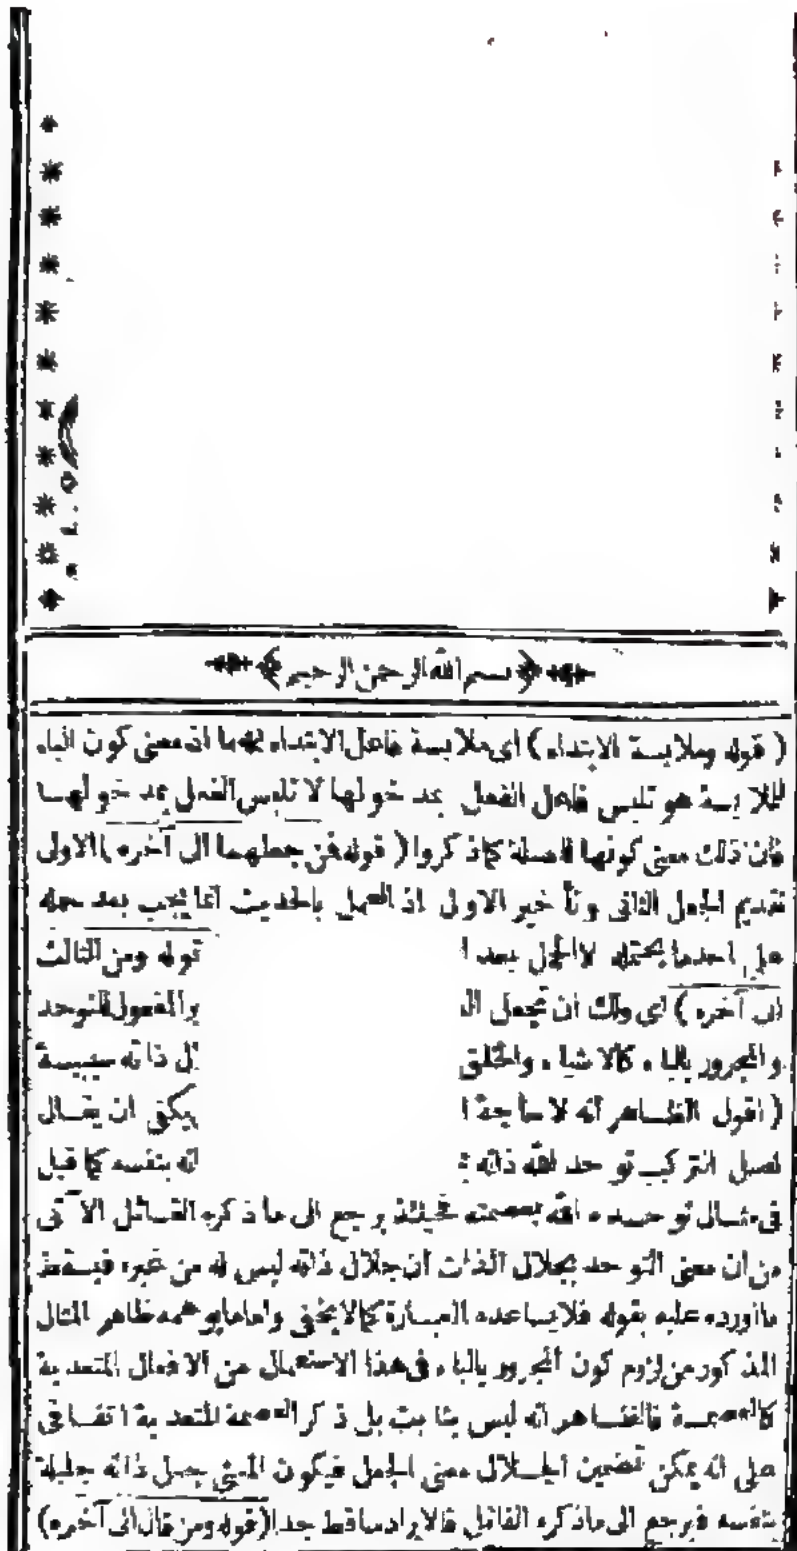 بسم الله الرحمن الرحيم
( قوله وملابسة الابتداء ) اى ملابسة فاعل الابتداء بهما اذ معنى كون الباء
للملابسة هو تلبس فاعل الفعل بمد خولها لا تلبس الفعل بمد خولهـا
فان ذلك معنى كونها للصلة كما ذكروا ( قوله فن جعلهما الى آخره ) الاولى
تقديم الجعل الثانى وتأ خير الاول اذ العمل بالحديث انما يجب بعد حمله
على احدهما بحتمله لا الجعل بعد ا قوله ومن الثالث
الى آخره ) اى ولك ان تجعل الـ المفعول للتوحد
والمجرور بالباء كالاشياء والخلق ذاته سببية
( اقول الظـاهر انه لا حاجة ا يكفى ان يقـال
اصل التركيب توحد الله ذاته انه بنفسه كما قيل
فى مثـال توحـده الله بعصمته فحينئذ يرجع الى ما ذكره القـائل الآتى
من ان معنى التوحد بجلال الذات ان جلال ذاته ليس له من غيره فيسقط
ما اورده عليه بقوله فلا يساعده العبـارة كما لا يخفى واما ما يوهمه ظاهر المثال
المذكور من لزوم كون المجرور بالباء فى هذا الاستعمال من الافعال المتعدية
كالعصمـة فالظـاهر انه ليس بثابت بل ذكر العصمة المتعدية اتفـاقى
على انه يمكن تضمين الجـلال معنى الجعل فيكون المعنى جعل ذاته جليلة
بنفسه فيرجع الى ما ذكره القائل فالايراد ساقط جدا ( قوله ومن قال الى آخره )